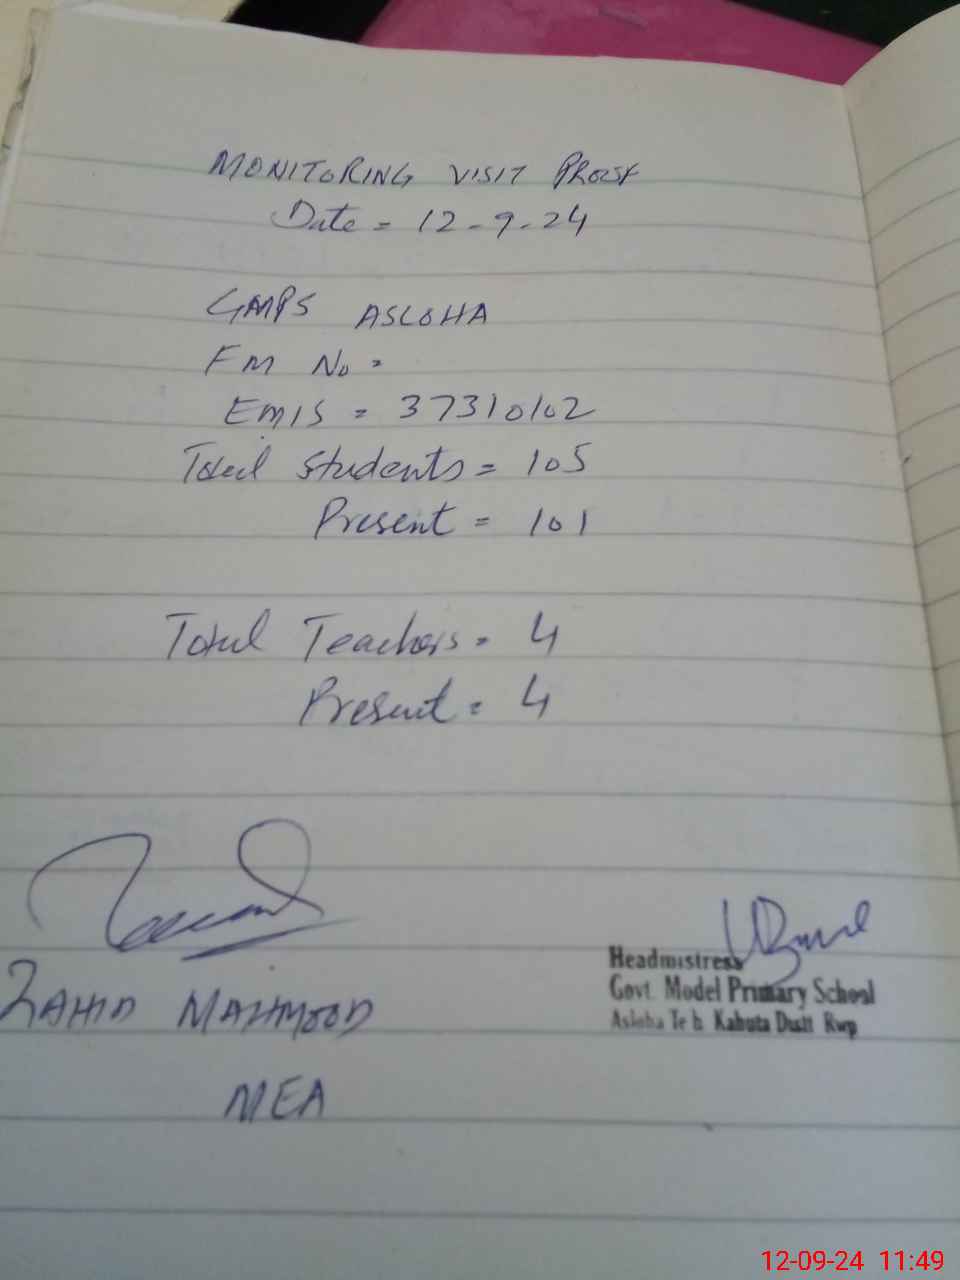 MONITORING VISIT PROOF
Date = 12-9-24
GMPS ASLOHA
FM No =
EMIS = 37310102
Total Students = 105
Present = 101
Total Teachers = 4
Present = 4
ZAHID MAHMOOD
MEA
Headmistress
Govt. Model Primary School
Asloha Teh Kahuta Distt Rwp
12-09-24 11:49